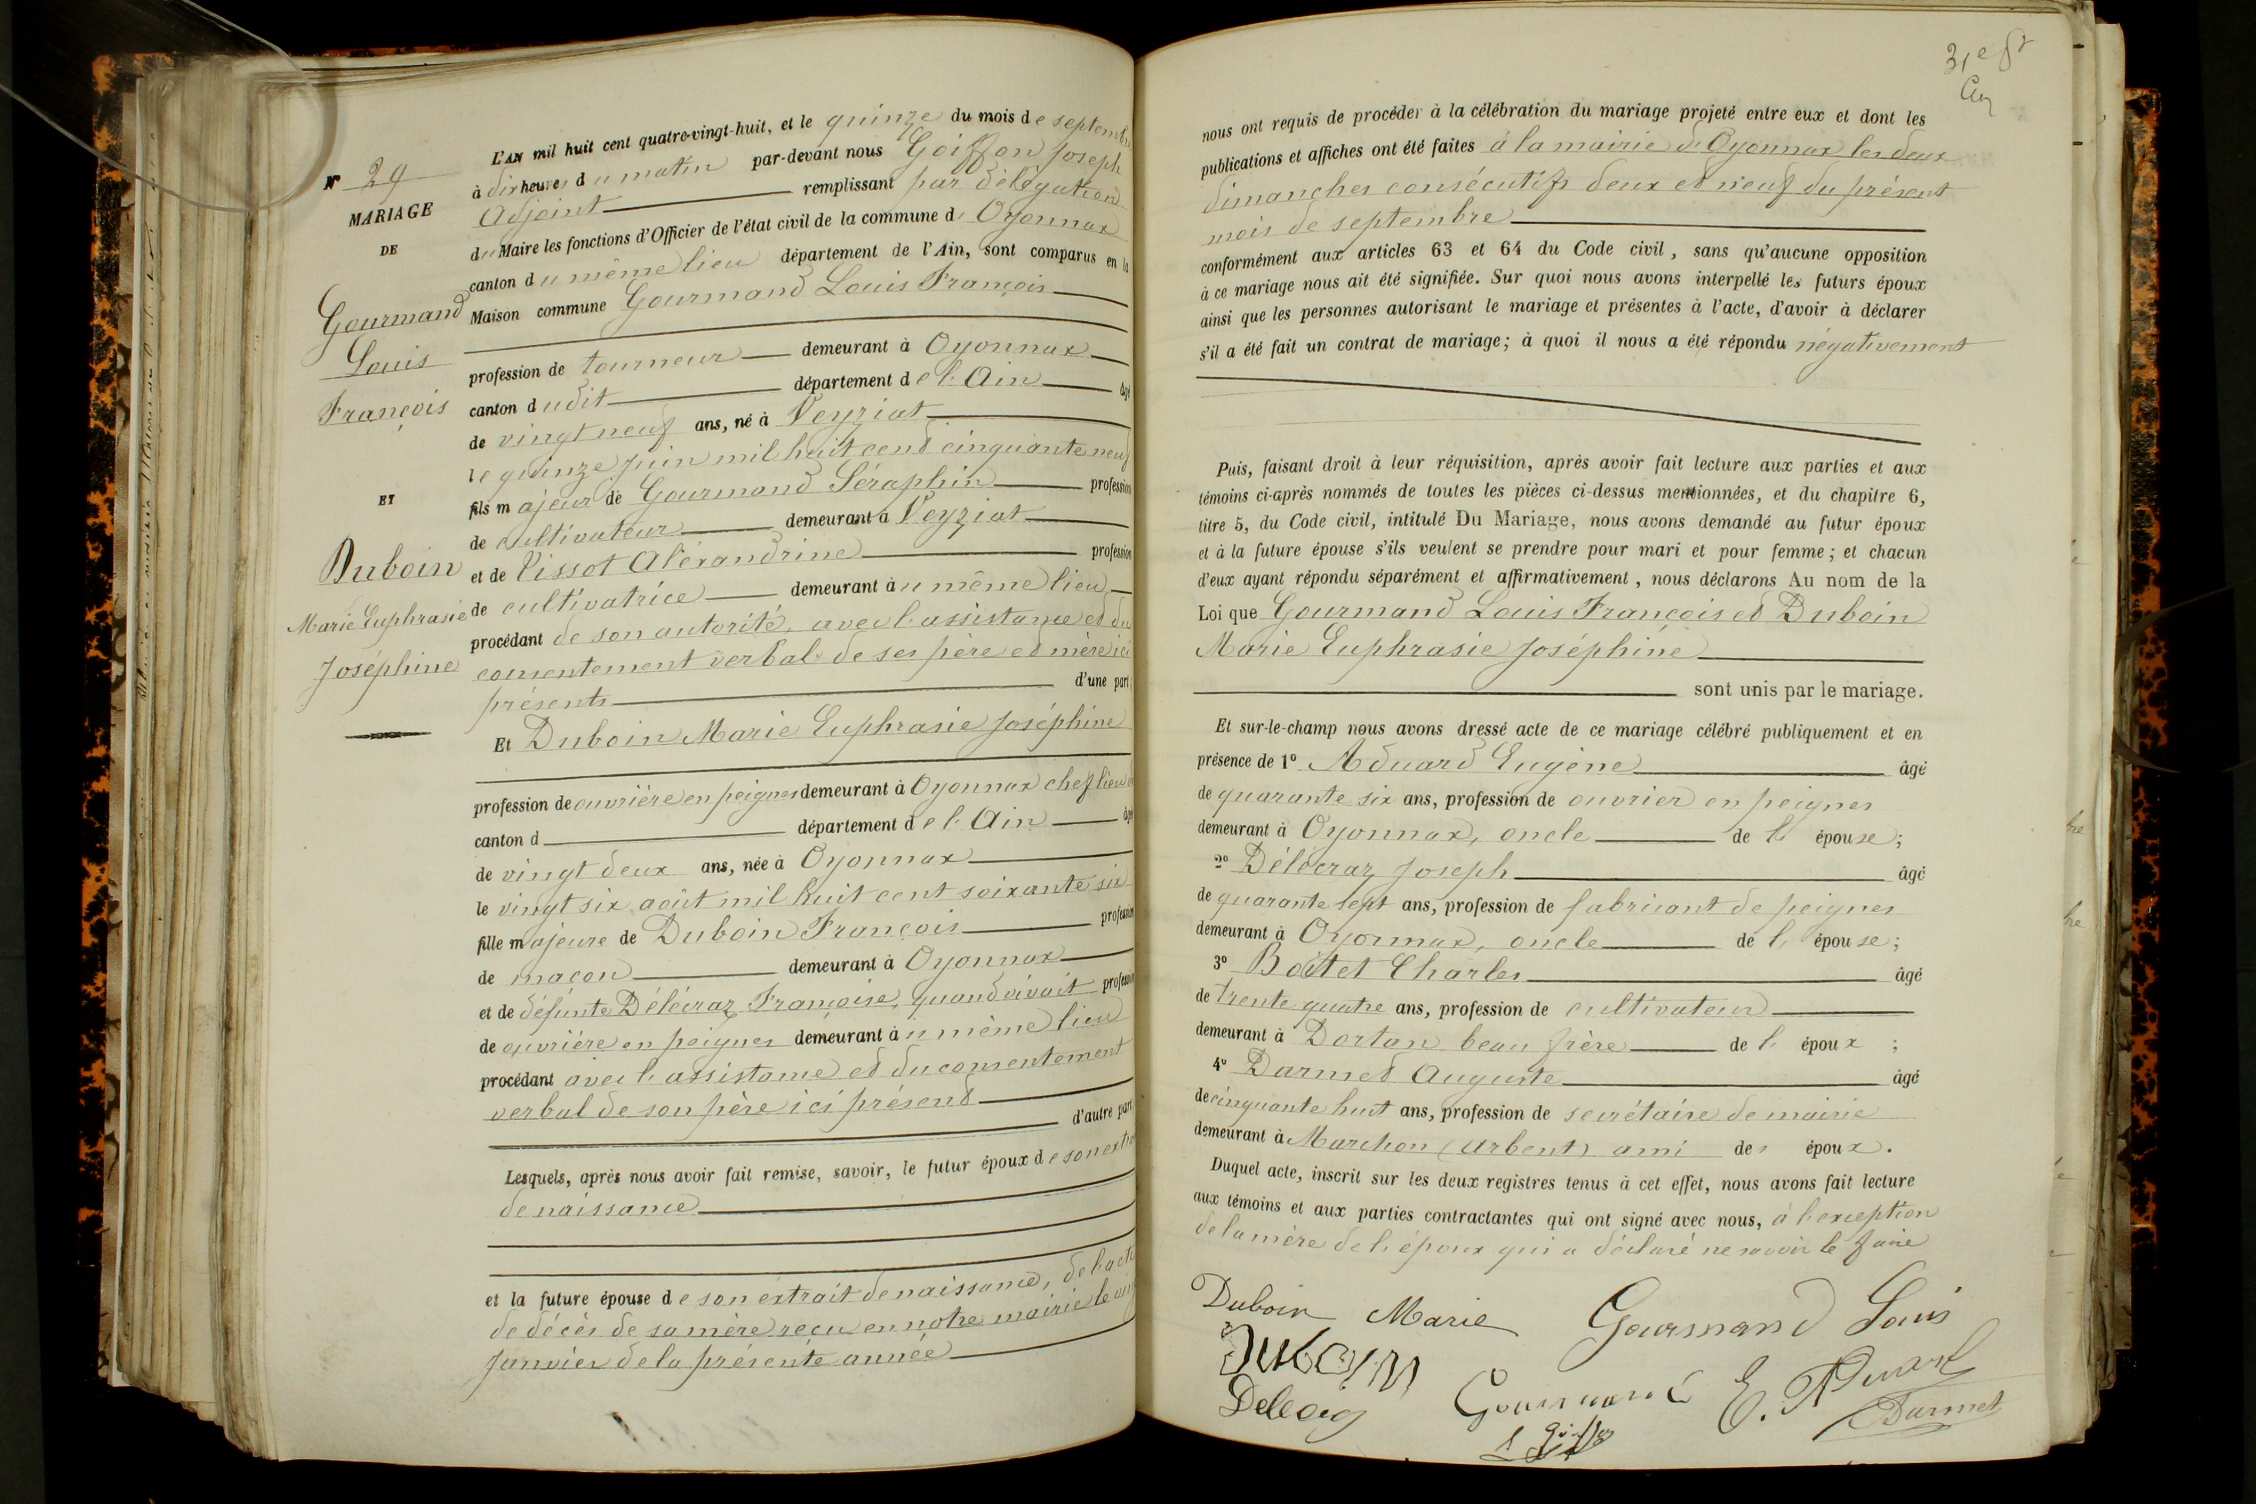 N° 29
MARIAGE
DE
Gourmand
Louis
François
ET
Duboin
Marie Euphrasie
Joséphine
L'AN mil huit cent quatre-vingt-huit, et le quinze du mois de septembre
à dix heures du matin par-devant nous Goiffon Joseph
Adjoint remplissant par délégation
du Maire les fonctions d'Officier de l'état civil de la commune d' Oyonnax
canton du même lieu département de l'Ain, sont comparus en la
Maison commune Gourmand Louis François
profession de tourneur demeurant à Oyonnax
canton dudit département de l'Ain âgé
de vingt neuf ans, né à Veyziat
le quinze juin mil huit cent cinquante neuf
fils majeur de Gourmand Séraphin profession
de cultivateur demeurant à Veyziat
et de Vissot Alexandrine profession
de cultivatrice demeurant au même lieu
procédant de son autorité, avec l'assistance et du
consentement verbal de ses père et mère ici
présents d'une part,
Et Duboin Marie Euphrasie Joséphine
profession de ouvrière en peignes demeurant à Oyonnax chef lieu de
canton d département de l'Ain âgé
de vingt deux ans, née à Oyonnax
le vingt six août mil huit cent soixante six
fille majeure de Duboin François profession
de maçon demeurant à Oyonnax
et de défunte Délécraz Françoise, quand vivait profession
de ouvrière en peignes demeurant au même lieu
procédant avec l'assistance et du consentement
verbal de son père ici présent
d'autre part
Lesquels, après nous avoir fait remise, savoir, le futur époux de son extrait
de naissance
et la future épouse de son extrait de naissance, de l'acte
de décès de sa mère reçu en notre mairie le
janvier de la présente année
31e ft
nous ont requis de procéder à la célébration du mariage projeté entre eux et dont les
publications et affiches ont été faites à la mairie d'Oyonnax les deux
dimanches consécutifs deux et neuf du présent
mois de septembre
conformément aux articles 63 et 64 du Code civil, sans qu'aucune opposition
à ce mariage nous ait été signifiée. Sur quoi nous avons interpellé les futurs époux
ainsi que les personnes autorisant le mariage et présentes à l'acte, d'avoir à déclarer
s'il a été fait un contrat de mariage; à quoi il nous a été répondu négativement
Puis, faisant droit à leur réquisition, après avoir fait lecture aux parties et aux
témoins ci-après nommés de toutes les pièces ci-dessus mentionnées, et du chapitre 6,
titre 5, du Code civil, intitulé Du Mariage, nous avons demandé au futur époux
et à la future épouse s'ils veulent se prendre pour mari et pour femme; et chacun
d'eux ayant répondu séparément et affirmativement, nous déclarons Au nom de la
Loi que Gourmand Louis François et Duboin
Marie Euphrasie Joséphine
sont unis par le mariage.
Et sur-le-champ nous avons dressé acte de ce mariage célébré publiquement et en
présence de 1° Aduard Eugène âgé
de quarante six ans, profession de ouvrier en peignes
demeurant à Oyonnax, oncle de l' épouse;
2° Délécraz Joseph âgé
de quarante sept ans, profession de fabricant de peignes
demeurant à Oyonnax, oncle de l' épouse;
3° Boitet Charles âgé
de trente quatre ans, profession de cultivateur
demeurant à Dortan beau frère de l' époux;
4° Darmet Auguste âgé
de cinquante huit ans, profession de secrétaire de mairie
demeurant à Marchon (Arbent) ami des époux.
Duquel acte, inscrit sur les deux registres tenus à cet effet, nous avons fait lecture
aux témoins et aux parties contractantes qui ont signé avec nous, à l'exception
de la mère de l'époux qui a déclaré ne savoir le faire
Duboin Marie Gourmand Louis
Duboin
Gourmand E. Aduard
Darmet